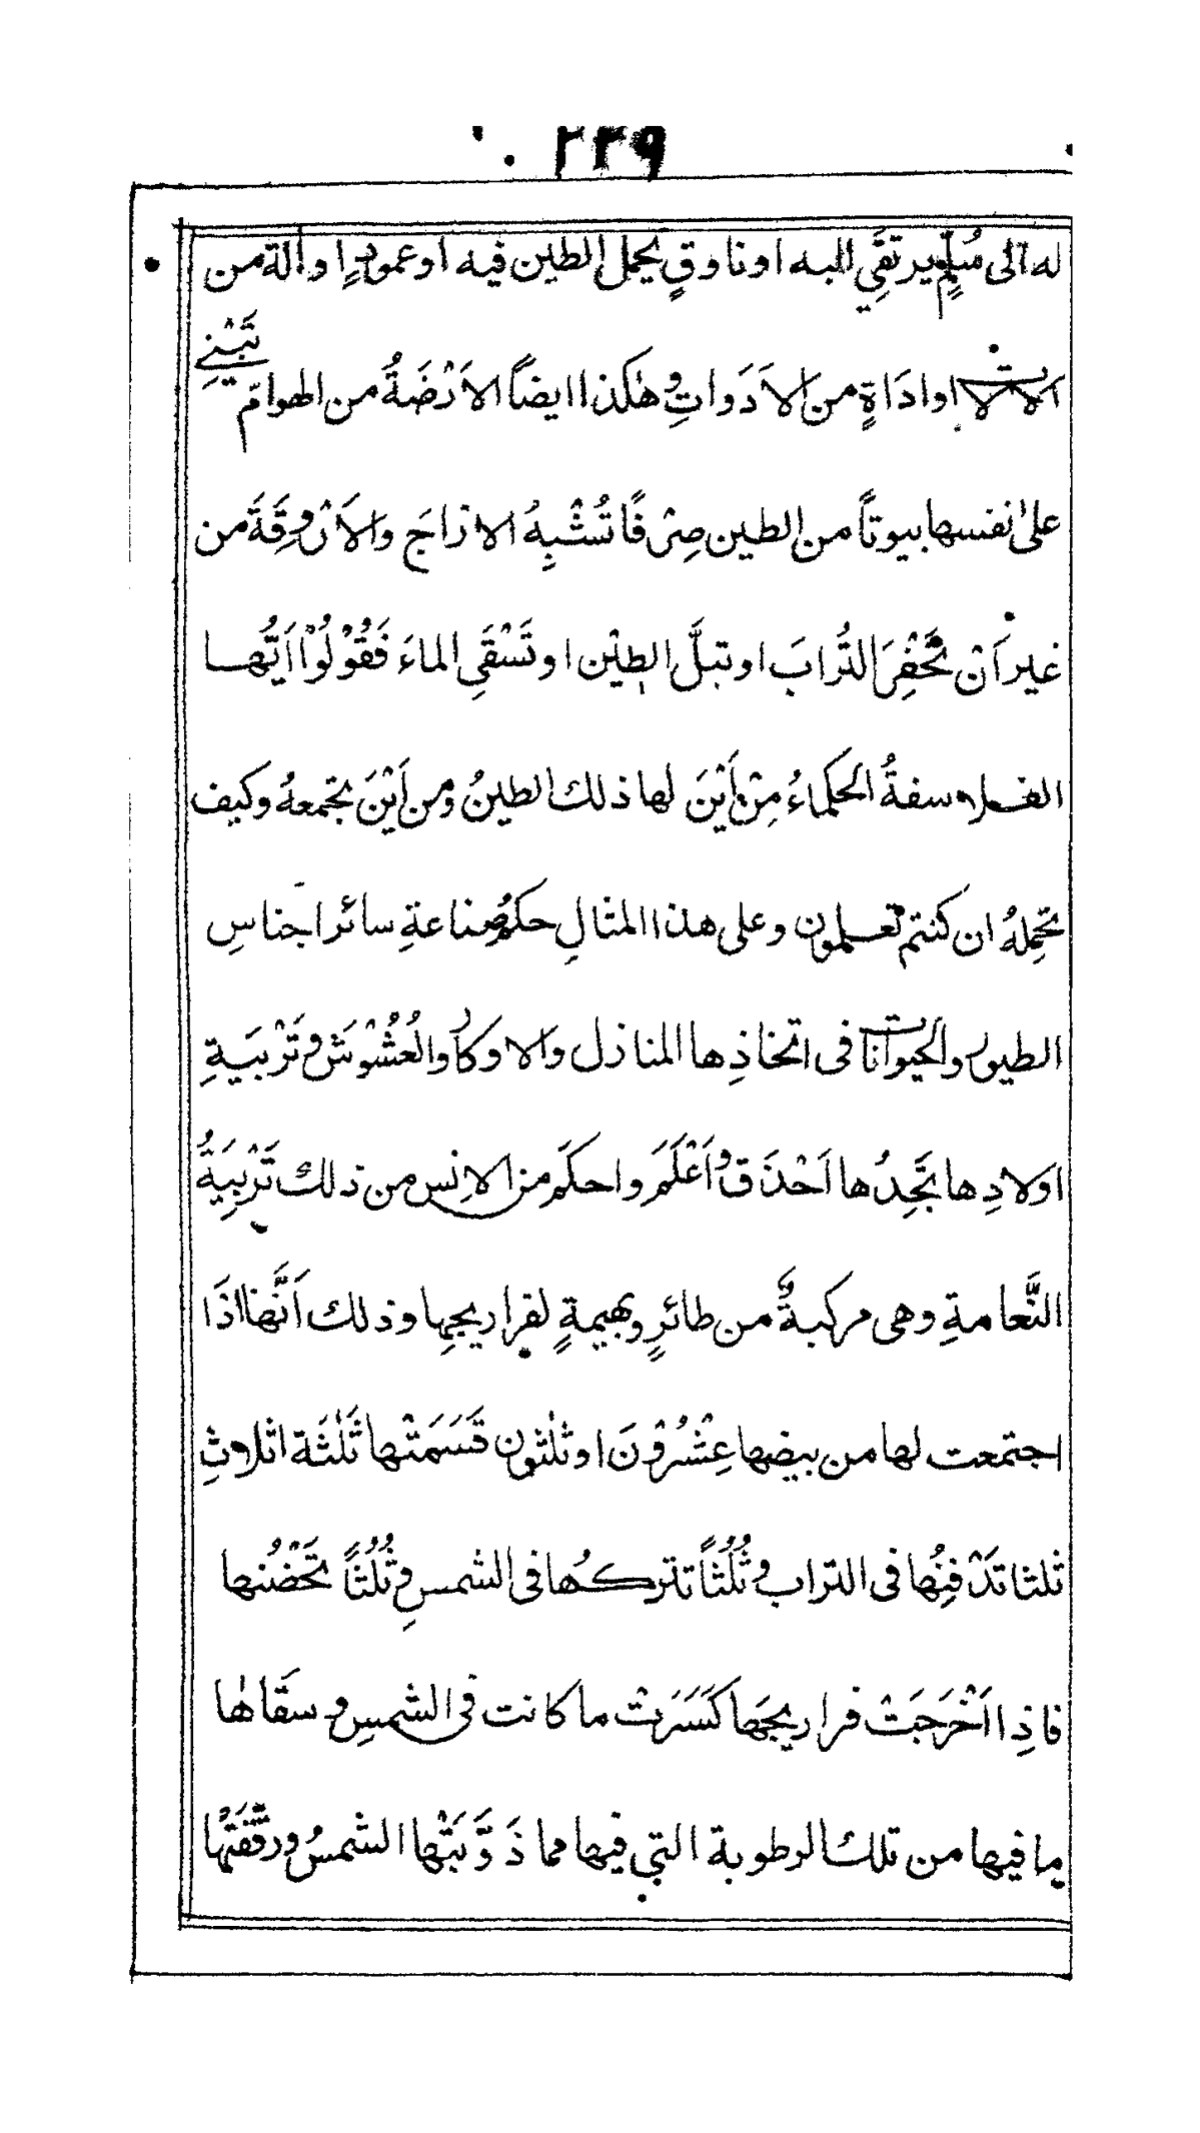 ٢٣٩
له الى سُلَّمٍ يرتقِي اليه او ناوقٍ يحمل الطين فيه او عمودٍ او آلة من
الآلات او ادَاةٍ من الاَدَواتِ وهٰكذا ايضاً الاَرْضَةُ من الهوامّ تَبْنِي
على نفسها بيوتاً من الطين صِرْفًا تُشْبِهُ الازاجَ والاَرْوِقَةَ من
غير اَنْ تَحْفِرَ التُّرابَ او تبلَّ الطِيْن او تَسْقَيِ الماءَ فَقُوْلُوْا اَيُّهـا
الفـلاسفةُ الحكماءُ مِنْ اَيْنَ لها ذلك الطينُ ومن اَيْنَ تجمعهُ وكيف
تحَمِلهُ ان كنتم تعـلمون وعلى هذا المثالِ حكم صناعةِ سائر اجناسِ
الطيور والحيوانات فى اتخاذِها المنازل والاوكارُ والعُشُوْشَ وتَرْبِيَـةِ
اولادِها تجَّدُها اَحْذَقُ واَعْلَمَ واحكَم من الانِس من ذلك تَرْبِيَةُ
النَّعامةِ وهى مركبةٌ من طائرٍ وبهيمةٍ لفراريجِها وذلك اَنَّها اذَا
اجتمعت لها من بيضها عِشْرُوْنَ او ثلٰثون قَسَمَتْها ثَلٰثَة اثلاثِ
ثلثا تَدْفِنُها فى التراب وثُلُثاً تتركُها فى الشمسِ وثُلُثاً تحَضُنها
فاذِا اَخْرَجَتْ فراريجَها كَسَرَتْ ما كانت فى الشمسِ وسقَاهٰا
ما فيها من تلك الرطوبة التي فيها مما ذَوَّبَتْها الشمسُ ورقَّقَتْها